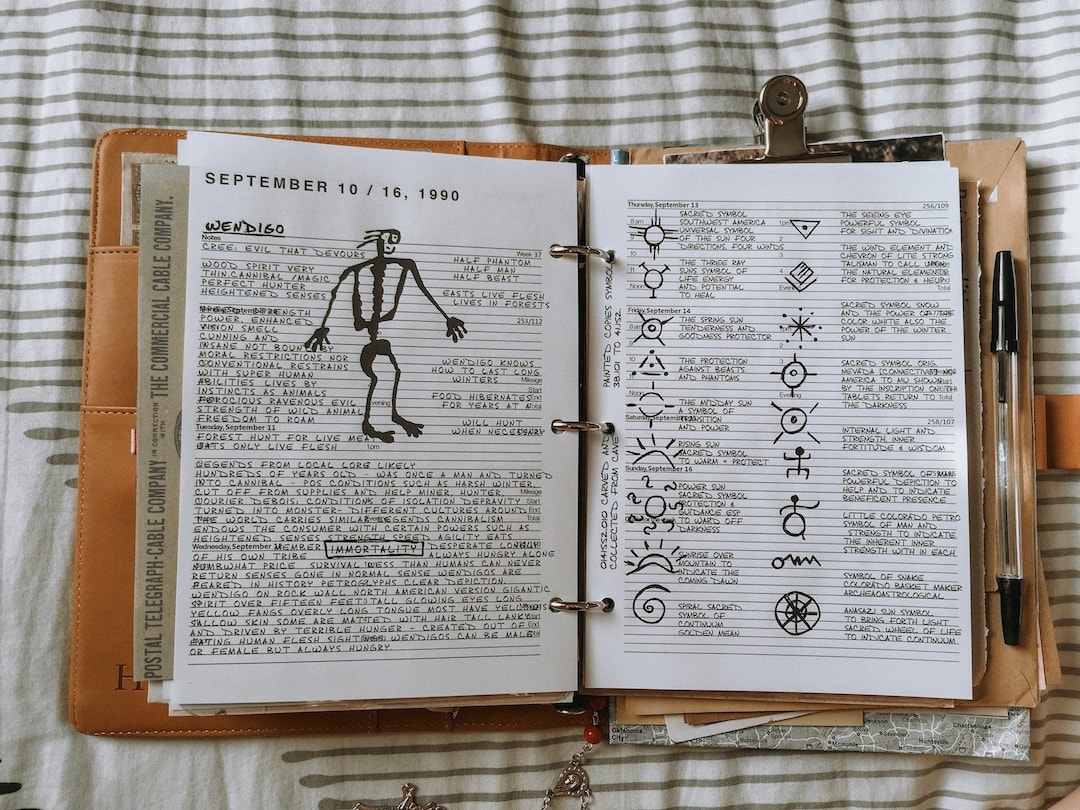 SEPTEMBER 10 / 16, 1990
WENDIGO
Notes
CREE: EVIL THAT DEVOURS
Week 37
WOOD SPIRIT VERY
THIN CANNIBAL /MAGIC
PERFECT HUNTER
HEIGHTENED SENSES
STRENGTH
POWER, ENHANCED
VISION SMELL
CUNNING AND
INSANE NOT BOUND BY
MORAL RESTRICTIONS NOR
CONVENTIONAL RESTRAINS
WITH SUPER HUMAN
ABILITIES LIVES BY
INSTINCTS AS ANIMALS
FEROCIOUS RAVENOUS EVIL
STRENGTH OF WILD ANIMAL
FREEDOM TO ROAM
HALF PHANTOM
HALF MAN
HALF BEAST
EASTS LIVE FLESH
LIVES IN FORESTS
253/112
WENDIGO KNOWS
HOW TO LAST LONG
WINTERS
Mileage
Start
FOOD HIBERNATES
End
FOR YEARS AT A
Total
Evening
WILL HUNT
WHEN NECESSARY
Tuesday, September 11
FOREST HUNT FOR LIVE MEAL
1pm
EATS ONLY LIVE FLESH
LEGENDS FROM LOCAL LORE LIKELY
HUNDREDS OF YEARS OLD - WAS ONCE A MAN AND TURNED
INTO CANNIBAL - POS CONDITIONS SUCH AS HARSH WINTER,
CUT OFF FROM SUPPLIES AND HELP MINER, HUNTER,
Mileage
COURIER DEBOIS, CONDITIONS OF ISOLATION DEPRAVITY
Start
TURNED INTO MONSTER- DIFFERENT CULTURES AROUND
End
THE WORLD CARRIES SIMILAR LEGENDS CANNIBALISM
Total
ENDOWS THE CONSUMER WITH CERTAIN POWERS SUCH AS
HEIGHTENED SENSES STRENGTH SPEED AGILITY EATS
Wednesday, September 12
MEMBER IMMORTALITY DESPERATE LONELY
OF HIS OWN TRIBE ALWAYS HUNGRY ALONE
SOMEWHAT PRICE SURVIVAL LESS THAN HUMANS CAN NEVER
RETURN SENSES GONE IN NORMAL SENSE WENDIGOS ARE
FEARED IN HISTORY PETROGLYPHS CLEAR DEPICTION
WENDIGO ON ROCK WALL NORTH AMERICAN VERSION GIGANTIC
SPIRIT OVER FIFTEEN FEET TALL GLOWING EYES LONG
YELLOW FANGS OVERLY LONG TONGUE MOST HAVE
SALLOW SKIN SOME ARE MATTED WITH HAIR TALL LANKY
AND DRIVEN BY TERRIBLE HUNGER - CREATED OUT OF
EATING HUMAN FLESH SIGHTINGS WENDIGOS CAN BE MALE
OR FEMALE BUT ALWAYS HUNGRY.
POSTAL TELEGRAPH-CABLE COMPANY IN CONNECTION WITH THE COMMERCIAL CABLE COMPANY.
H
PAINTED COPIES SYMBOL
38.101 TO 41.152.
CARVED AND
COLLECTED FROM CAVE
Thursday, September 13
256/109
8am
SACRED SYMBOL
SOUTHWEST AMERICA
UNIVERSAL SYMBOL
OF THE SUN FOUR
DIRECTIONS, FOUR WINDS
10
11
Noon
THE THREE RAY
SUNS SYMBOL OF
LIFE ENERGY
AND POTENTIAL
TO HEAL
Friday, September 14
8am
THE SPRING SUN
TENDERNESS AND
GOODNESS PROTECTOR
THE PROTECTION
AGAINST BEASTS
AND PHANTOMS
THE MIDDAY SUN
A SYMBOL OF
TRANSITION
AND POWER
Saturday, September 15
RISING SUN
SACRED SYMBOL
TO WARM + PROTECT
Sunday, September 16
POWER SUN
SACRED SYMBOL
PROTECTION &
GUIDANCE ESP
TO WARD OFF
DARKNESS
SUNRISE OVER
MOUNTAIN TO
INDICATE THE
COMING DAWN
SPIRAL SACRED
SYMBOL OF
CONTINUUM
GOLDEN MEAN
1pm
2
THE SEEING EYE
POWERFUL SYMBOL
FOR SIGHT AND DIVINATION
THE WIND ELEMENT AND
CHEVRON OF LITE STRONG
TALISMAN TO CALL UPON
THE NATURAL ELEMENTS
FOR PROTECTION & HELP
Evening
SACRED SYMBOL SNOW
AND THE POWER OF THE
COLOR WHITE ALSO THE
POWER OF THE WINTER
SUN
1pm
Evening
SACRED SYMBOL ORIG.
NEVADA (CONNECTIVE)
AMERICA TO MU SHOWN
BY THE INSCRIPTION ON
TABLETS RETURN TO
THE DARKNESS
258/107
INTERNAL LIGHT AND
STRENGTH, INNER
FORTITUDE & WISDOM
SACRED SYMBOL OF MAN
POWERFUL DEPICTION TO
HELP AND TO INDICATE
BENEFICENT PRESENCE
LITTLE COLORADO PETRO
SYMBOL OF MAN AND
STRENGTH TO INDICATE
THE INHERENT INNER
STRENGTH WITH IN EACH
SYMBOL OF SNAKE
COLORADO BASKET MAKER
ARCHEAOASTROLOGICAL
ANASAZI SUN SYMBOL
TO BRING FORTH LIGHT
SACRED WHEEL OF LIFE
TO INDICATE CONTINUUM
Oklahoma
City
Memphis
Jackson
Huntsville
Chattanooga